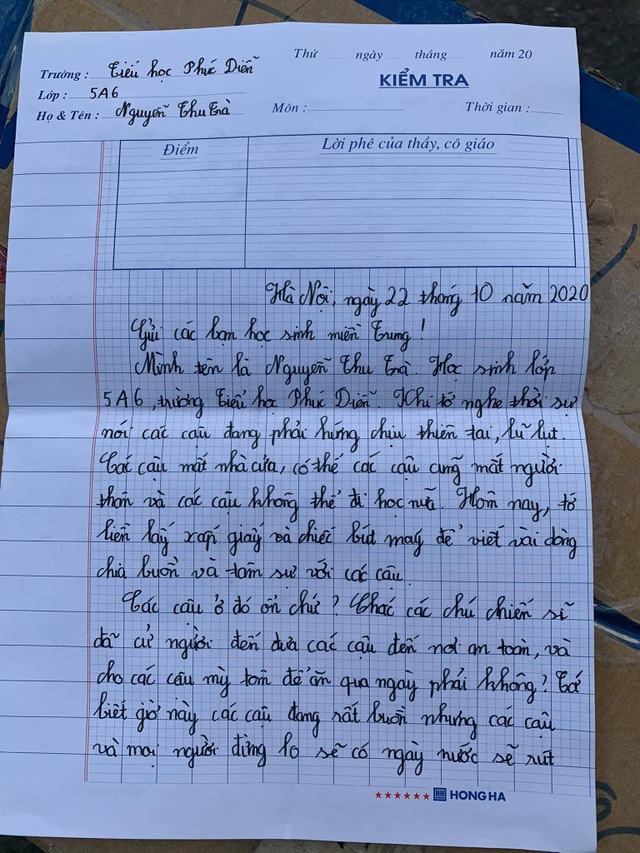 Trường : Tiểu học Phúc Diễn
Lớp : 5A6
Họ & Tên : Nguyễn Thu Trà
Thứ ngày tháng năm 20
KIỂM TRA
Môn : Thời gian :
Điểm
Lời phê của thầy, cô giáo
Hà Nội, ngày 22 tháng 10 năm 2020
Gửi các bạn học sinh miền Trung !
Mình tên là Nguyễn Thu Trà. Học sinh lớp
5A6, trường Tiểu học Phúc Diễn. Khi tớ nghe thời sự
nói các cậu đang phải hứng chịu thiên tai, lũ lụt.
Các cậu mất nhà cửa, có thể các cậu cũng mất người
thân và các cậu không thể đi học nữa. Hôm nay, tớ
liền lấy xấp giấy và chiếc bút máy để viết vài dòng
chia buồn và tâm sự với các cậu.
Các cậu ở đó ổn chứ ? Chắc các chú chiến sĩ
đã cử người đến đưa các cậu đến nơi an toàn, và
cho các cậu mỳ tôm để ăn qua ngày phải không? Tớ
biết giờ này các cậu đang rất buồn nhưng các cậu
và mọi người đừng lo sẽ có ngày nước sẽ rút
HONG HA